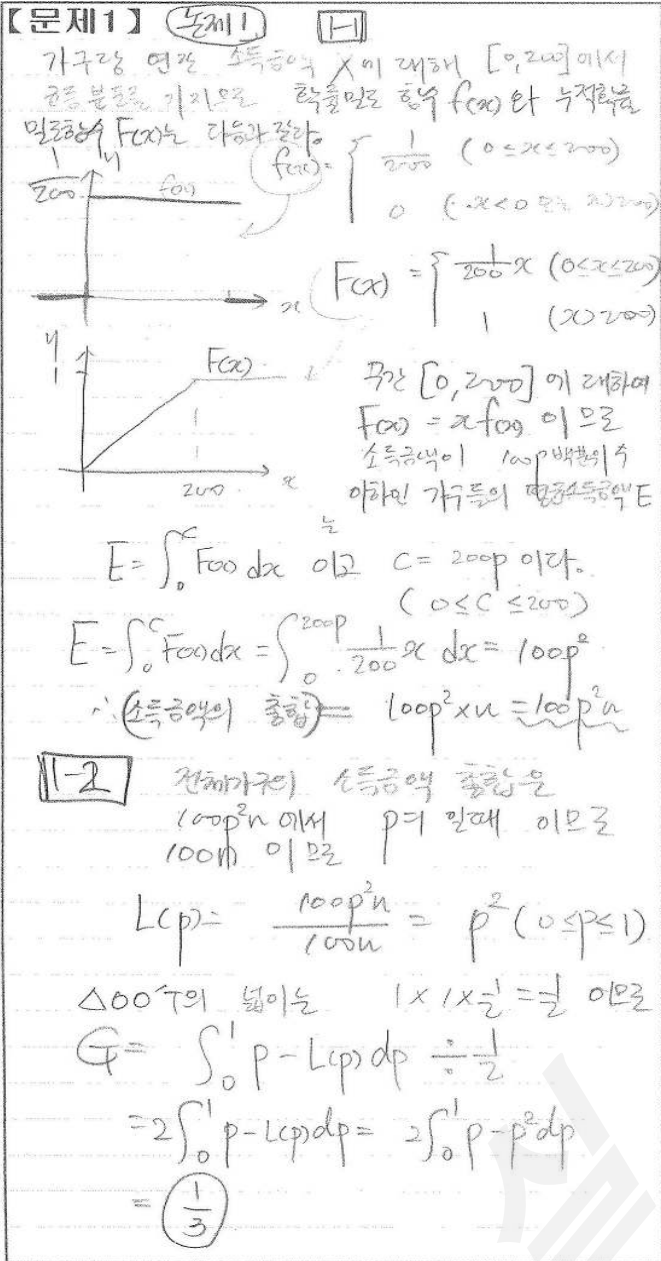 【문제1】 논제1 1-1
가구당 연간 소득금액 X에 대해 [0,200]에서
균등분포를 가지므로 확률밀도 함수 f(x)와 누적확률
밀도함수 F(x)는 다음과 같다.
f(x)= { 1/200 (0≤x≤200)
0 (x<0 또는 x>200)
y
1/200
f(x)
x
F(x) = { 1/200 x (0≤x≤200)
1 (x>200)
y
1
F(x)
200
x
구간 [0,200]에 대하여
F(x) = xf(x) 이므로
소득금액이 100p 백분위수
이하인 가구들의 평균소득금액 E
는
E=∫₀ᶜ F(x) dx 이고 C= 200p 이다.
(0≤C≤200)
E=∫₀ᶜ F(x)dx = ∫₀²⁰⁰ᵖ 1/200 x dx = 100p²
∴ (소득금액의 총합) = 100p²×n = 100p²n
1-2 전체가구의 소득금액 총합은
100p²n 에서 p=1 일때 이므로
100n 이므로
L(p)= 100p²n / 100n = p² (0≤p≤1)
△OO'T의 넓이는 1×1×1/2=1/2 이므로
G= ∫₀¹ p-L(p)dp ÷ 1/2
=2∫₀¹ p-L(p)dp = 2∫₀¹ p-p²dp
= 1/3